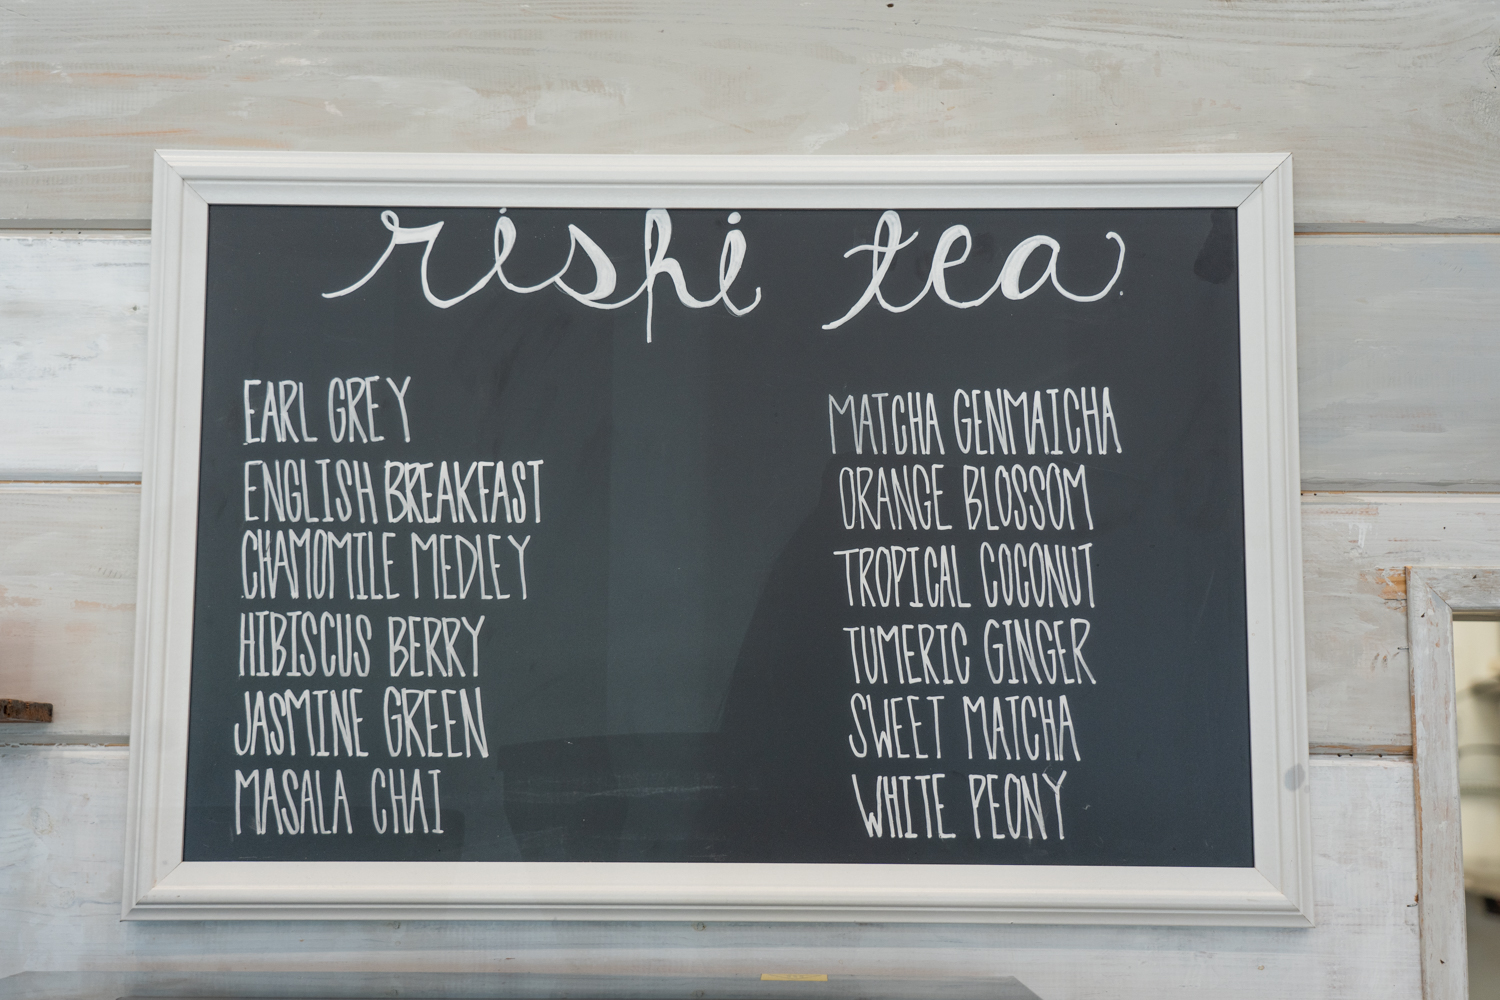 rishi tea
EARL GREY
ENGLISH BREAKFAST
CHAMOMILE MEDLEY
HIBISCUS BERRY
JASMINE GREEN
MASALA CHAI
MATCHA GENMAICHA
ORANGE BLOSSOM
TROPICAL COCONUT
TUMERIC GINGER
SWEET MATCHA
WHITE PEONY